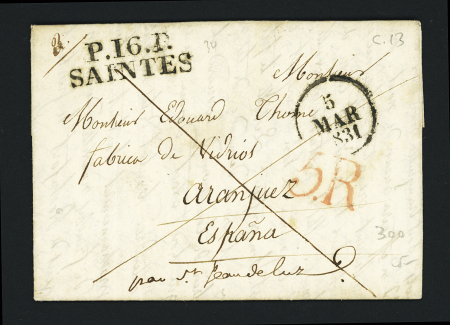 P.16.P.
SAINTES
30
C.13
Monsieur
5
MAR
831
Monsieur Edouard Thome
fabrica de Vidrios
aranjuez
España
5.R
300
par St Jean de luz